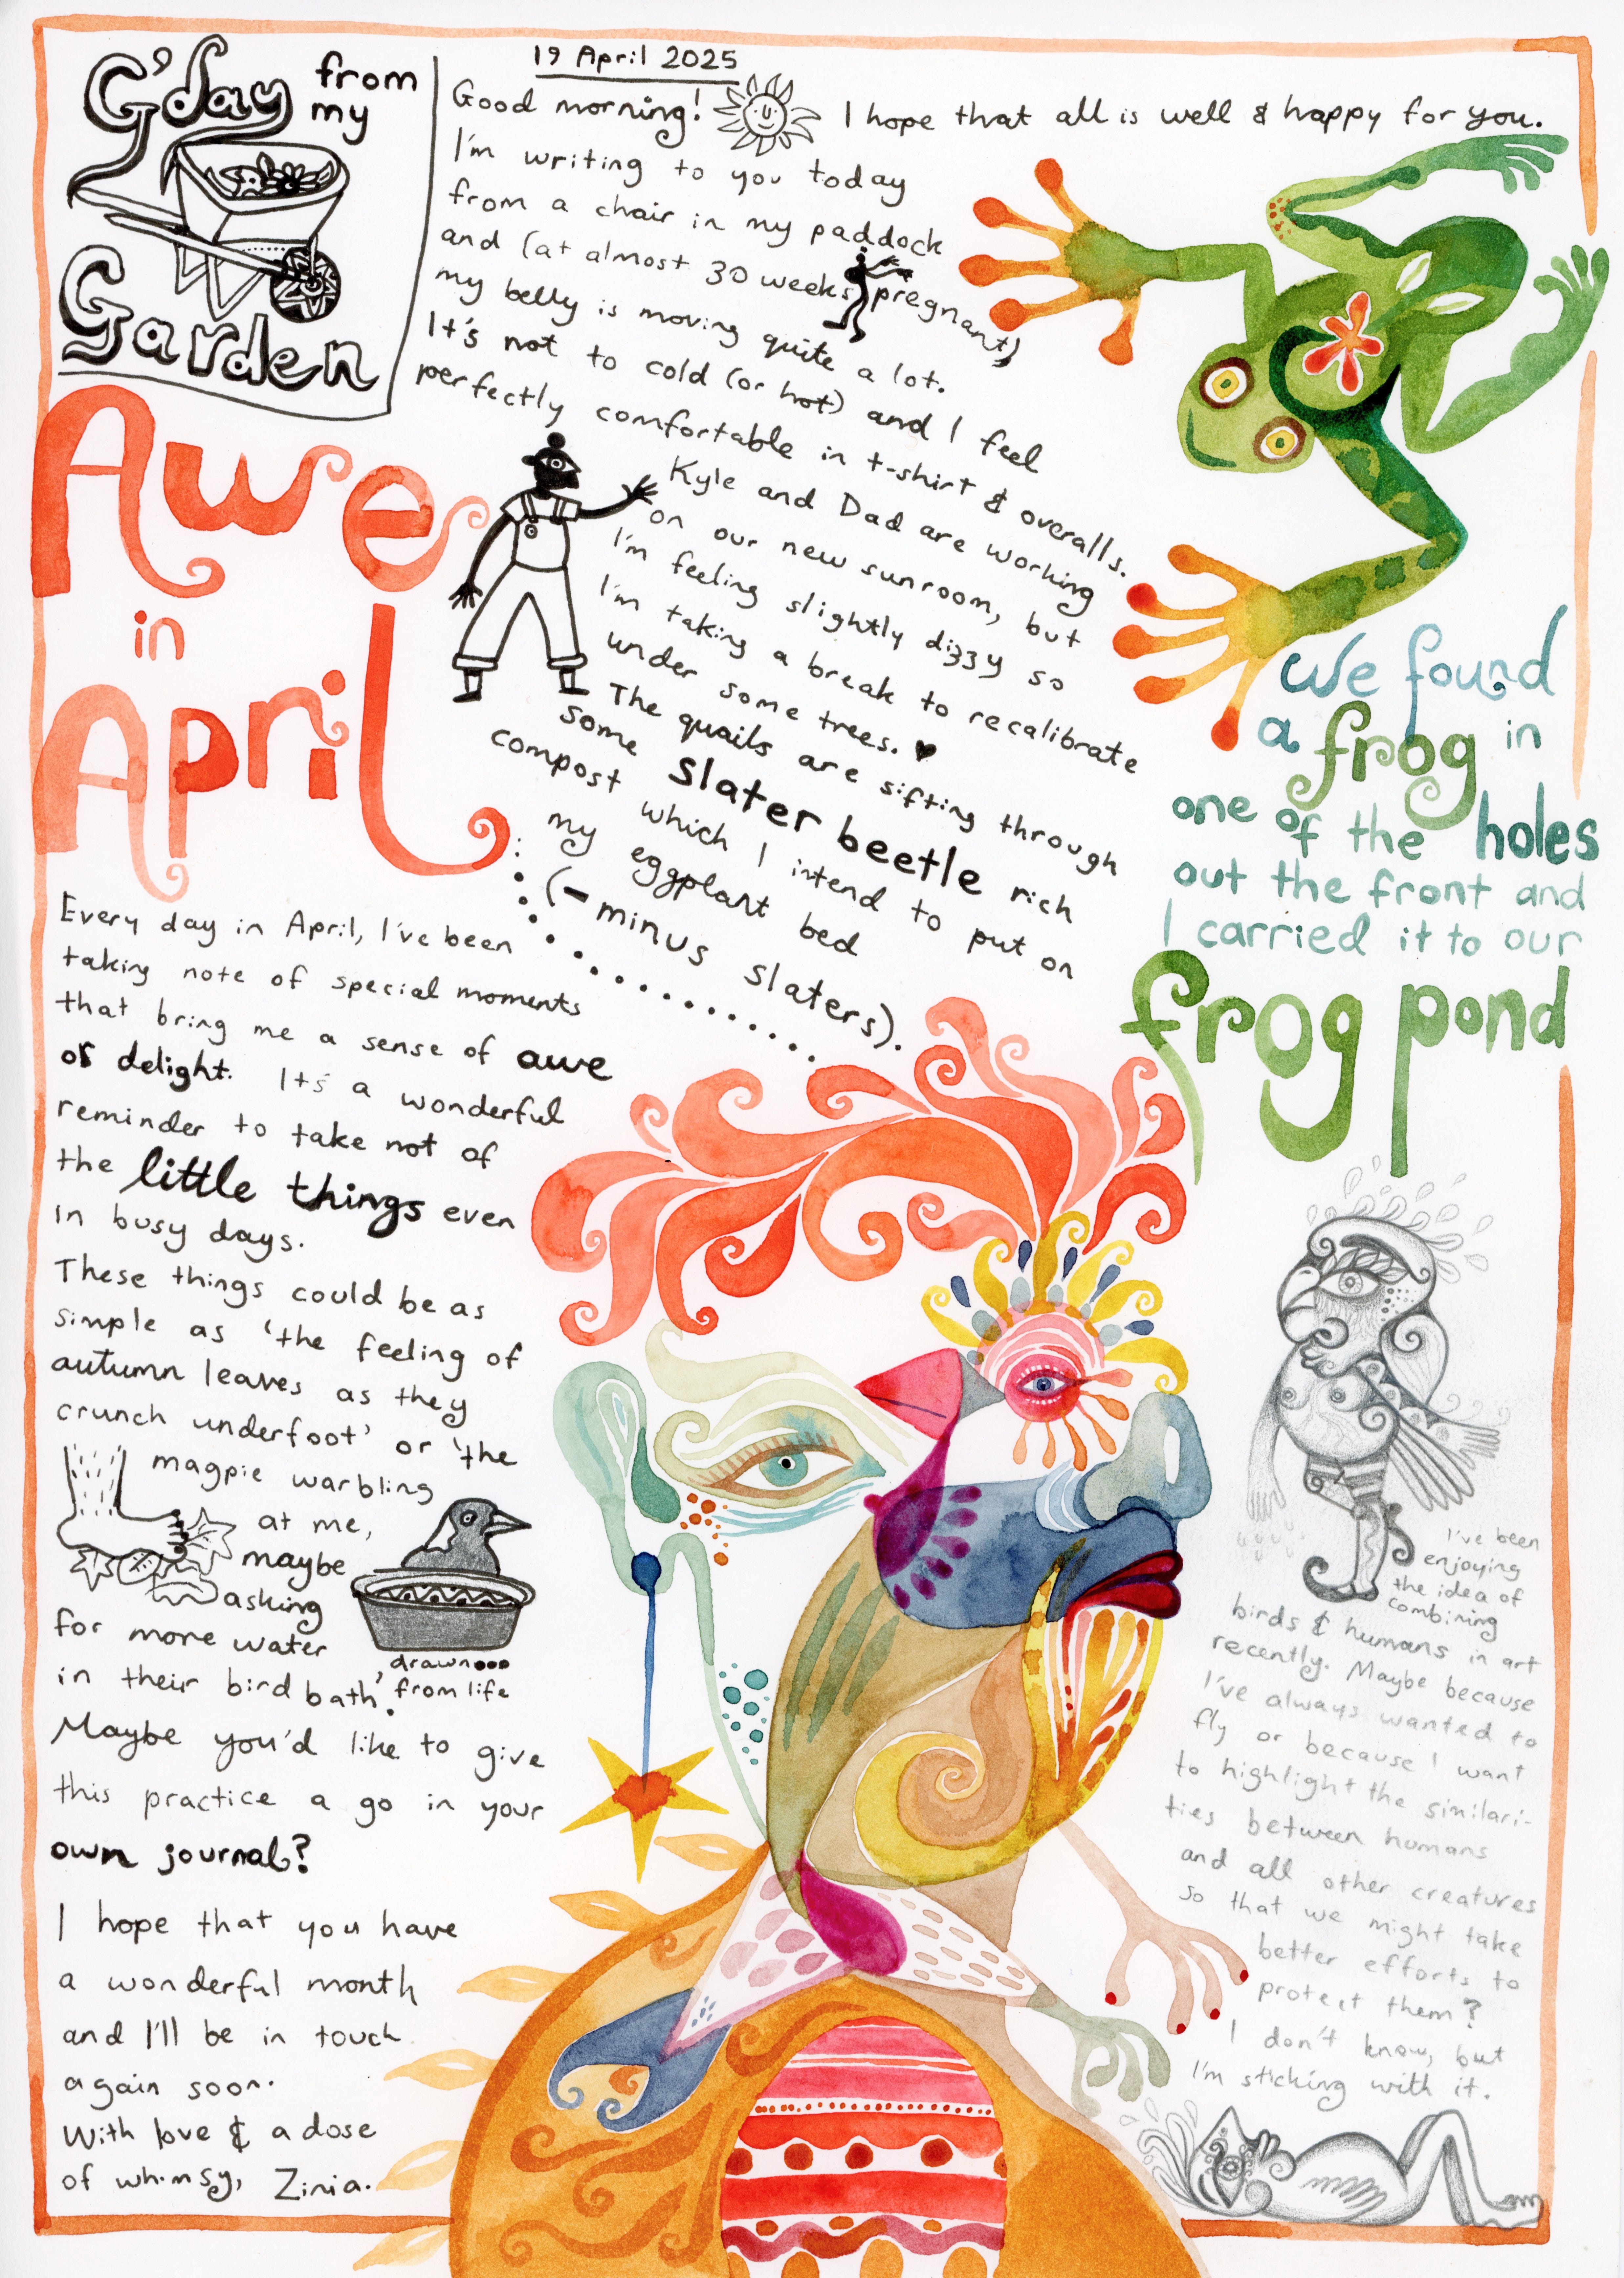 G'day from
my
Garden
19 April 2025
Good morning! I hope that all is well & happy for you.
I'm writing to you today
from a chair in my paddock
and (at almost 30 weeks pregnant)
my belly is moving quite a lot.
It's not to cold (or hot) and I feel
perfectly comfortable in t-shirt & overalls.
Kyle and Dad are working
on our new sunroom, but
I'm feeling slightly dizzy so
I'm taking a break to recalibrate
under some trees. ♥
The quails are sifting through
some slater beetle rich
compost which I intend to put on
my eggplant bed
(- minus slaters).
Awe
in
April
Every day in April, I've been
taking note of special moments
that bring me a sense of awe
or delight. It's a wonderful
reminder to take not of
the little things even
in busy days.
These things could be as
simple as 'the feeling of
autumn leaves as they
crunch underfoot' or 'the
magpie warbling
at me,
maybe
asking
for more water
in their bird bath'.
drawn...
from life
Maybe you'd like to give
this practice a go in your
own journal?
I hope that you have
a wonderful month
and I'll be in touch
again soon.
With love & a dose
of whimsy, Zinia.
We found
a frog in
one of the holes
out the front and
I carried it to our
frog pond
I've been
enjoying
the idea of
combining
birds & humans in art
recently. Maybe because
I've always wanted to
fly or because I want
to highlight the similari-
ties between humans
and all other creatures
so that we might take
better efforts to
protect them?
I don't know, but
I'm sticking with it.